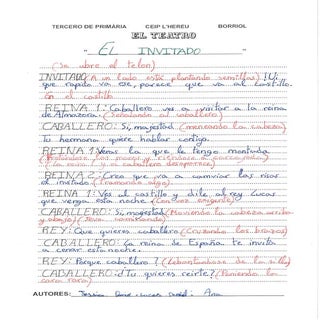 TERCERO DE PRIMÀRIA CEIP L'HEREU BORRIOL
EL TEATRO
"EL INVITADO"
(Se abre el telón)
INVITADO(A un lado está plantando semillas)!Uy
que rapido va ese, parece que va al castillo.
En el castillo
REINA 1: Caballero ves a visitar a la reina
de Almazora (Señalando al caballero)
CABALLERO: Si, majestad (meneando la cabeza)
Tu hermana quiere hablar contigo.
REINA 1: Vema la que le tengo montada
(la reina y el caballero desaparecen)
REINA 2: Creo que va a camviar las risas
el invitado (Tramando algo)
REINA 1: Ves al castillo y dile al rey Lucas
que venga esta noche (Con voz exigente)
CABALLERO: Si, majestad (Moviendo la cabeza arriba
y abajo)
REY: Que quieres caballero (Cruzando los brazos)
CABALLERO: La reina de España te invita
a cenar esta noche.
REY: Porque caballero? (Lebantandose de la silla)
CABALLERO: ¿Tu quieres reirte? (Poniendo la
cara rara)
AUTORES: Jessica Lucas David Ana